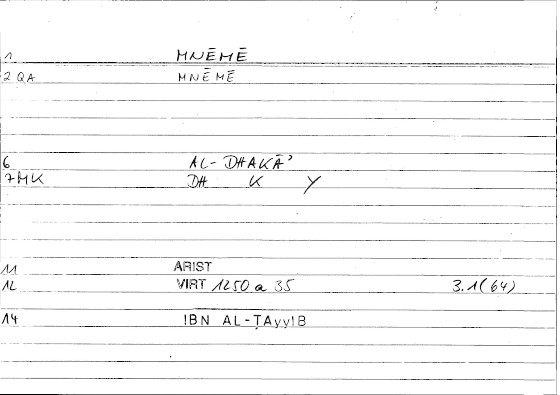 1 MNĒMĒ
2 QA MNĒMĒ
6 AL-DHAKĀʾ
7MK DH K Y
11 ARIST
12 VIRT 1250 a 35 3.1(64)
14 IBN AL-ṬAyyIB